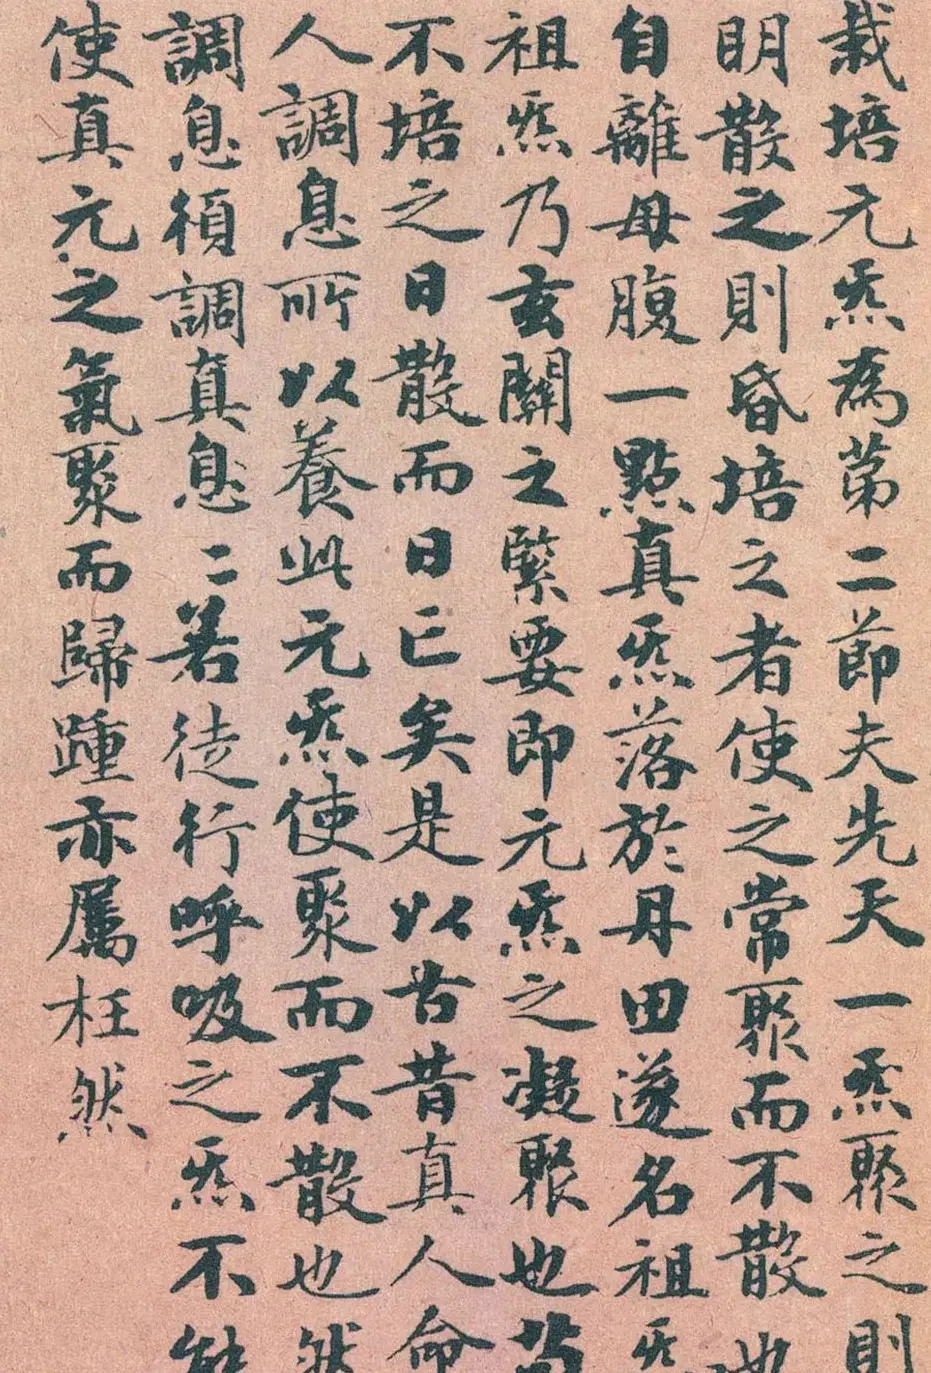 栽培元炁為第二節夫先天一炁聚之則
明散之則昏培之者使之常聚而不散也
自離母腹一點真炁落於丹田遂名祖炁
祖炁乃玄關之緊要即元炁之凝聚也苟
不培之日散而日亡矣是以古昔真人命
人調息所以養此元炁使聚而不散也然
調息須調真息二若徒行呼吸之炁不能
使真元之氣聚而歸踵亦屬枉然